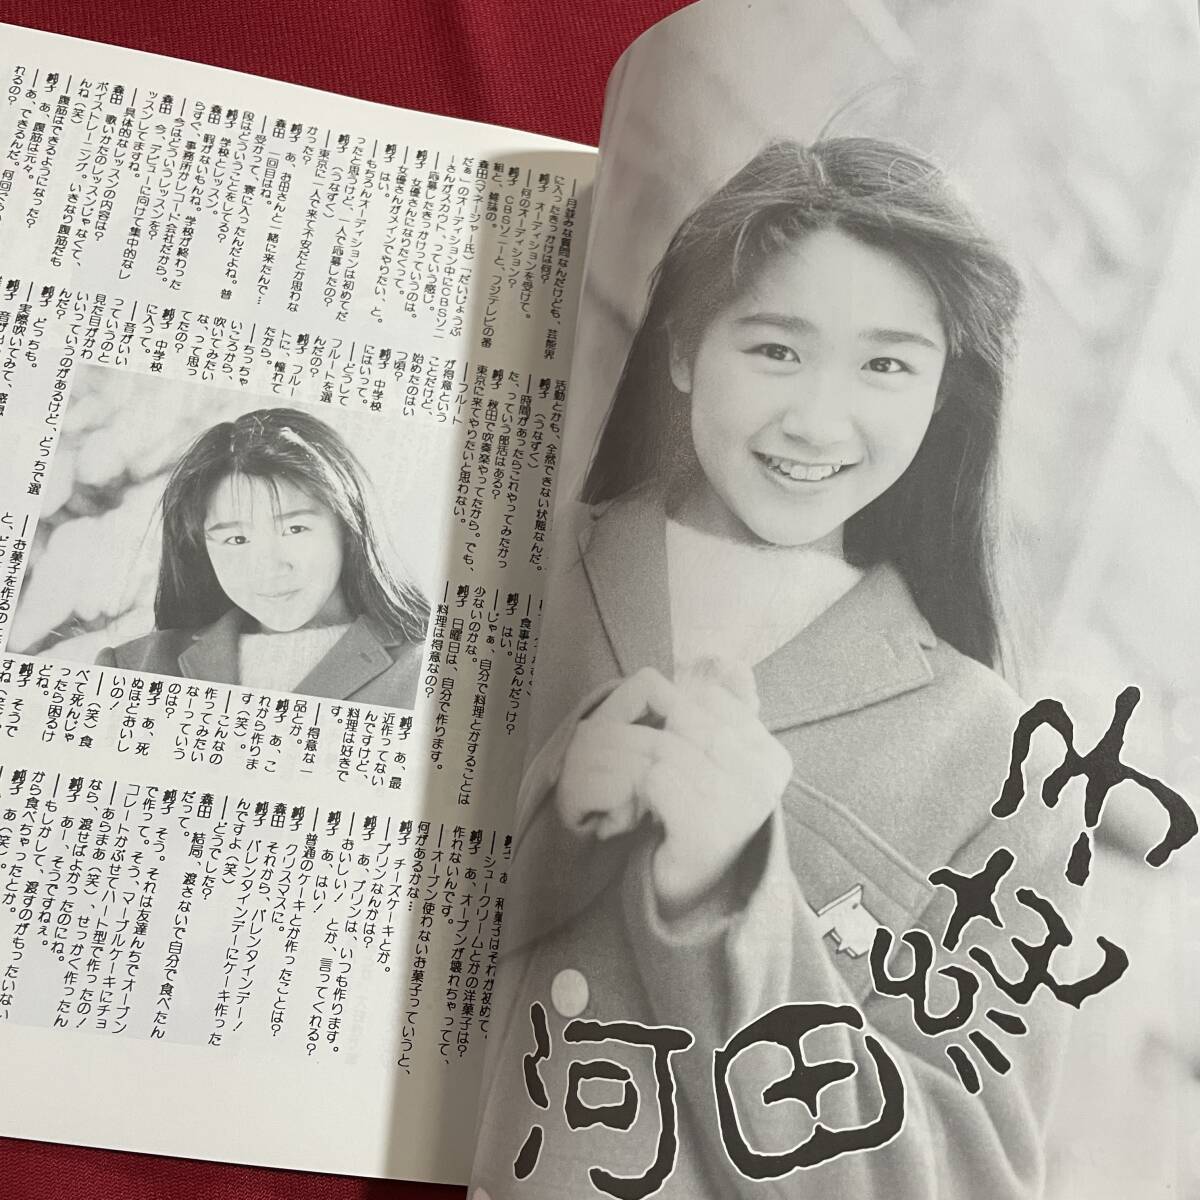 河田純子
――月並みな質問なんだけども、芸能界
に入ったきっかけは何？
純子　オーディションを受けて。
――何のオーディション？
純子　ＣＢＳソニーと、フジテレビの番
組と、雑誌の。
森田（マネージャー氏）「だいじょうぶ
だぁ」のオーディション中にＣＢＳソニ
ーさんがスカウト、っていう感じ。
――応募したきっかけっていうのは。
純子　女優さんになりたくって。
――女優さんがメインでやりたい、と。
純子　はい。
――もちろんオーディションは初めてだ
ったと思うけど、一人で応募したの？
純子　（うなずく）
――東京に一人で来て不安だとか思わな
かった？
純子　あ、お田さんと一緒に来たんで…
森田　一回目はね。
――受かって、寮に入ったんだよね。普
段はどういうことをしてる？
純子　学校とレッスン。
森田　暇がないもんね。学校が終わった
らすぐ、事務所かレコード会社だから。
――今はどういうレッスンを？
森田　今、デビューに向けて集中的なレ
ッスンしてますね。
――具体的なレッスンの内容は？
森田　歌いかたのレッスンじゃなくて、
ボイストレーニング。いきなり腹筋だも
んね（笑）
――腹筋はできるようになった？
純子　あ、腹筋は元々。
――あ、できるんだ。何回ぐらい
れるの？
活動とかも、全然できない状態なんだ。
純子　（うなずく）
――時間があったらこれやってみたかっ
た、っていう部活はある？
純子　秋田で吹奏楽やってたから。でも、
東京に来てやりたいと思わない。
――フルート
が得意という
ことだけど、
始めたのはい
つ頃？
純子　中学校
にはいって。
――どうして
フルートを選
んだの？
純子　フルー
トに、憧れて
たから。
――ちっちゃ
いころから、
吹いてみたい
な、って思っ
てたの？
純子　中学校
に入って。
――音がいい
っていうのと
見た目がかわ
いいっていうのがあるけど、どっちで選
んだ？
純子　どっちも。
――実際吹いてみて、感想
純子　音が出
――食事は出るんだっけ？
純子　はい。
――じゃぁ、自分で料理とかすることは
少ないのかな。
純子　日曜日は、自分で作ります。
――料理は得意なの？
純子　あ、最
近作ってない
んですけど、
料理は好きで
す。
――得意な一
品とか。
純子　あ、こ
れから作りま
す（笑）。
――こんなの
作ってみたい
なーっていう
のは？
純子　あ、死
ぬほどおいし
いの！
――（笑）食
べて死んじゃ
ったら困るけ
どね。
純子　そうで
すね（笑）。
――お菓子を作るの
純子　あ、和菓子はそれが初めて。
――シュークリームとかの洋菓子は？
純子　あ、オーブンが壊れちゃってて、
作れないんです。
――オーブン使わないお菓子っていうと、
何があるかな…
純子　チーズケーキとか。
――プリンなんかは？
純子　あ、プリンは、いつも作ります。
――おいしい！　とか、言ってくれる？
純子　あ、はい！
――普通のケーキとか作ったことは？
純子　クリスマスに。
森田　それから、バレンタインデー！
純子　バレンタインデーにケーキ作った
んですよ（笑）
――どうでした？
森田　結局、渡さないで自分で食べたん
だって。
純子　そう。それは友達んちでオーブン
で作って。そう、マーブルケーキにチョ
コレートかぶせてハート型で作ったの！
――あらまあ（笑）、せっかく作ったん
なら、渡せばよかったのにね。
純子　あー、そうですねぇ。
――もしかして、渡すのがもったいない
から食べちゃったとか。
純子　あ（笑）。